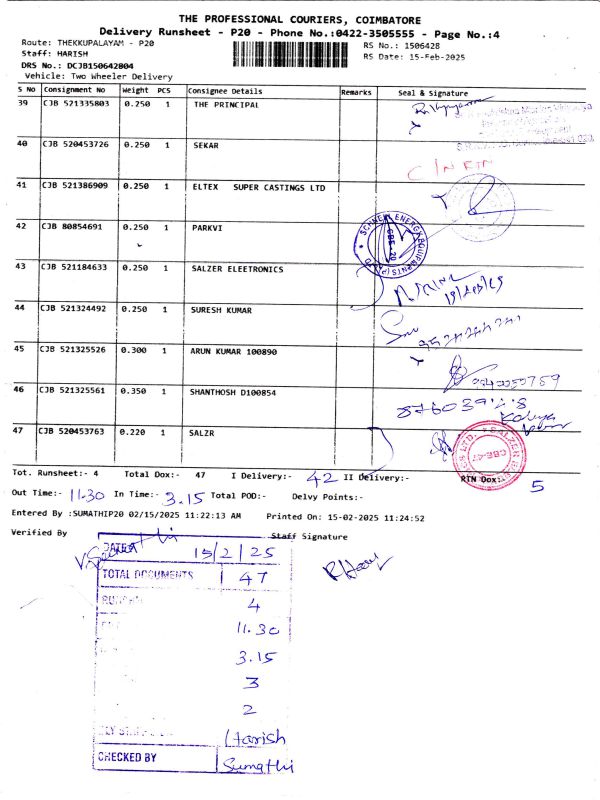 THE PROFESSIONAL COURIERS, COIMBATORE
Delivery Runsheet - P20 - Phone No.:0422-3505555 - Page No.:4
Route: THEKKUPALAYAM - P20
RS No.: 1506428
Staff: HARISH
RS Date: 15-Feb-2025
DRS No.: DCJB150642804
Vehicle: Two Wheeler Delivery
S No Consignment No Weight PCS Consignee Details Remarks Seal & Signature
39 CJB 521335803 0.250 1 THE PRINCIPAL
40 CJB 520453726 0.250 1 SEKAR
C/N RTN
41 CJB 521386909 0.250 1 ELTEX SUPER CASTINGS LTD
42 CJB 80854691 0.250 1 PARKVI
CBE-20
43 CJB 521184633 0.250 1 SALZER ELEETRONICS
44 CJB 521324492 0.250 1 SURESH KUMAR
45 CJB 521325526 0.300 1 ARUN KUMAR 100890
46 CJB 521325561 0.350 1 SHANTHOSH D100854
47 CJB 520453763 0.220 1 SALZR
CBE-47
Tot. Runsheet:- 4 Total Dox:- 47 I Delivery:- 42 II Delivery:- RTN Dox:- 5
Out Time:- 11.30 In Time:- 3.15 Total POD:- Delvy Points:-
Entered By :SUMATHIP20 02/15/2025 11:22:13 AM Printed On: 15-02-2025 11:24:52
Verified By Staff Signature
DATE 15/2/25
TOTAL DOCUMENTS 47
4
11.30
3.15
3
2
Harish
CHECKED BY Sumathi